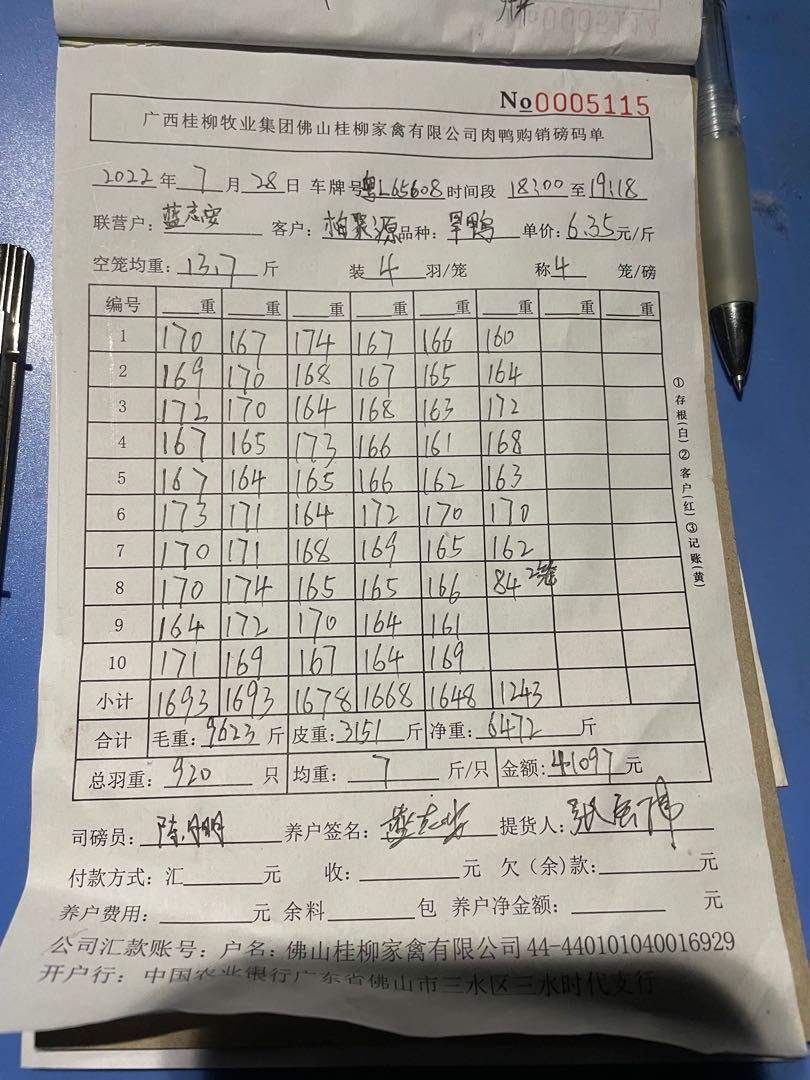 No0005115
广西桂柳牧业集团佛山桂柳家禽有限公司肉鸭购销磅码单
2022年7月28日 车牌号粤L65608时间段 18:00至19:18
联营户:蓝志安 客户:柏聚源品种:旱鸭 单价:6.35元/斤
空笼均重:13.7斤 装4羽/笼 称4笼/磅
编号 重 重 重 重 重 重 重 重
1 170 167 174 167 166 160
2 169 170 168 167 165 164
3 172 170 164 168 163 172
4 167 165 173 166 161 168
5 167 164 165 166 162 163
6 173 171 164 172 170 170
7 170 171 168 169 165 162
8 170 174 165 165 166 84 2笼
9 164 172 170 164 161
10 171 169 167 164 169
小计 1693 1693 1678 1668 1648 1243
合计 毛重:9623斤 皮重:3151斤 净重:6472斤
总羽重:920只 均重:7斤/只 金额:41097元
司磅员: 养户签名: 提货人:张
付款方式:汇 元 收: 元 欠(余)款: 元
养户费用: 元 余料 包 养户净金额: 元
公司汇款账号:户名:佛山桂柳家禽有限公司 44-440101040016929
开户行:中国农业银行广东省佛山市三水区三水时代支行
①存根(白)②客户(红)③记账(黄)